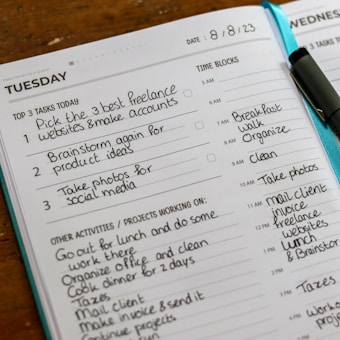 TUESDAY
DATE : 8/8/23
TOP 3 TASKS TODAY
1 Pick the 3 best freelance
websites & make accounts
2 Brainstorm again for
product ideas
3 Take photos for
social media
OTHER ACTIVITIES / PROJECTS WORKING ON:
Go out for lunch and do some
work there
Organize office and clean
Cook dinner for 2 days
Taxes
Mail client
Make invoice & send it
Continue projects
TIME BLOCKS
5 AM
6 AM
7 AM Breakfast
walk
8 AM Organize
9 AM Clean
10 AM Take photos
11 AM mail client
invoice
freelance
12 PM websites
1 PM lunch
& Brainstor
2 PM
3 PM Taxes
4 PM
projec
WEDNES
TOP 3 TASKS T